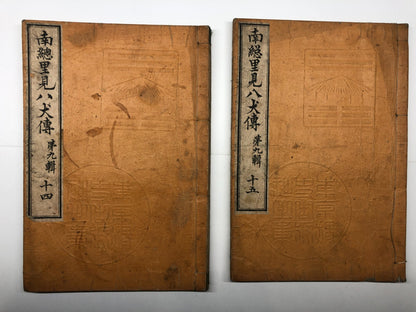 南總里見八犬傳 第九輯 十四
南總里見八犬傳 第九輯 十五